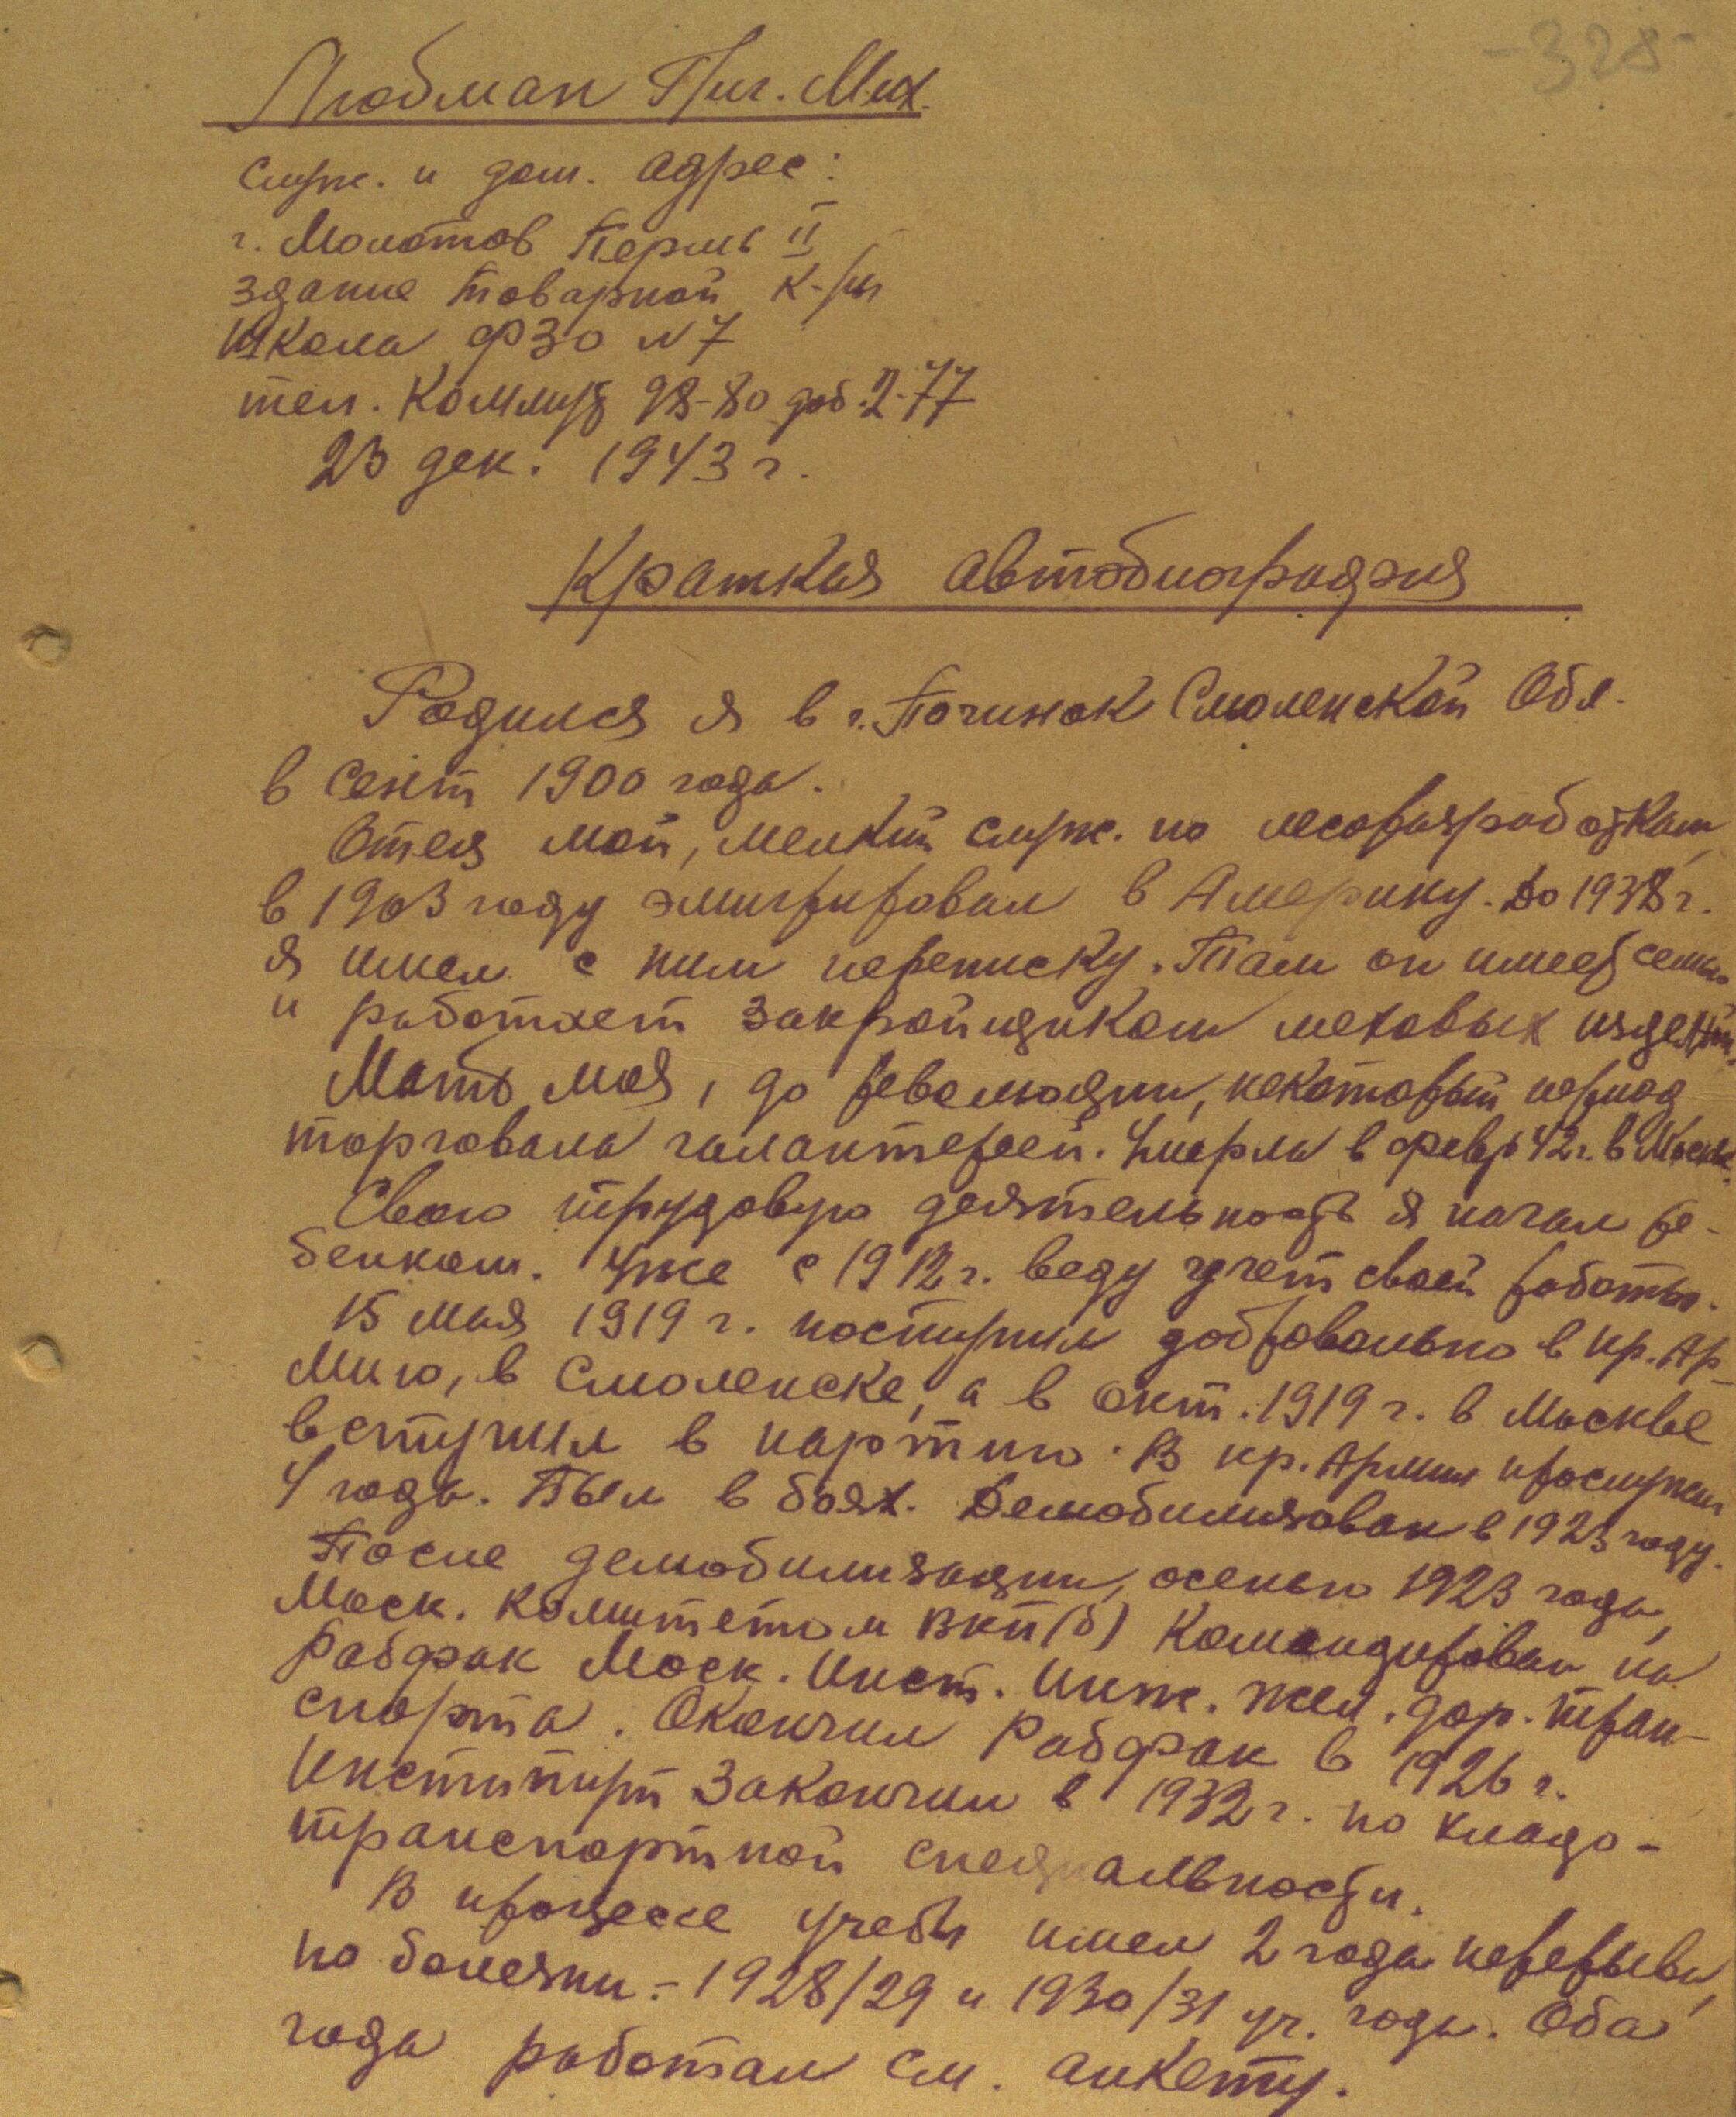 -328-
Любман Гиг. Мих.
Служ. и дом. адрес:
г. Молотов Пермь II
здание товарной к-ры
Школа ФЗО N 7
тел. Коммут 98-80 доб. 2-77
23 дек. 1943 г.
Краткая автобиография
Родился я в г. Починок Смоленской Обл.
в Сент 1900 года.
Отец мой, мелкий служ. по лесоразработкам,
в 1903 году эмигрировал в Америку. До 1938 г.
я имел с ним переписку. Там он имеет семью
и работает закройщиком меховых изделий.
Мать моя, до революции, некоторый период
торговала галантереей. Умерла в февр 42 г. в Москве.
Свою трудовую деятельность я начал ре-
бенком. Уже с 1912 г. веду учет своей работы.
15 мая 1919 г. поступил добровольно в кр. Ар-
мию, в Смоленске, а в окт. 1919 г. в Москве
вступил в партию. В кр. Армии прослужил
4 года. Был в боях. Демобилизован в 1923 году.
После демобилизации, осенью 1923 года,
Моск. Комитетом ВКП(б) командирован на
Рабфак Моск. Инст. Инж. Жел. дор. тран-
спорта. Окончил Рабфак в 1926 г.
Институт закончил в 1932 г. по кладо-
транспортной специальности.
В процессе учебы имел 2 года перерыва,
по болезни - 1928/29 и 1930/31 уч. годы. Оба
года работал см. анкету.